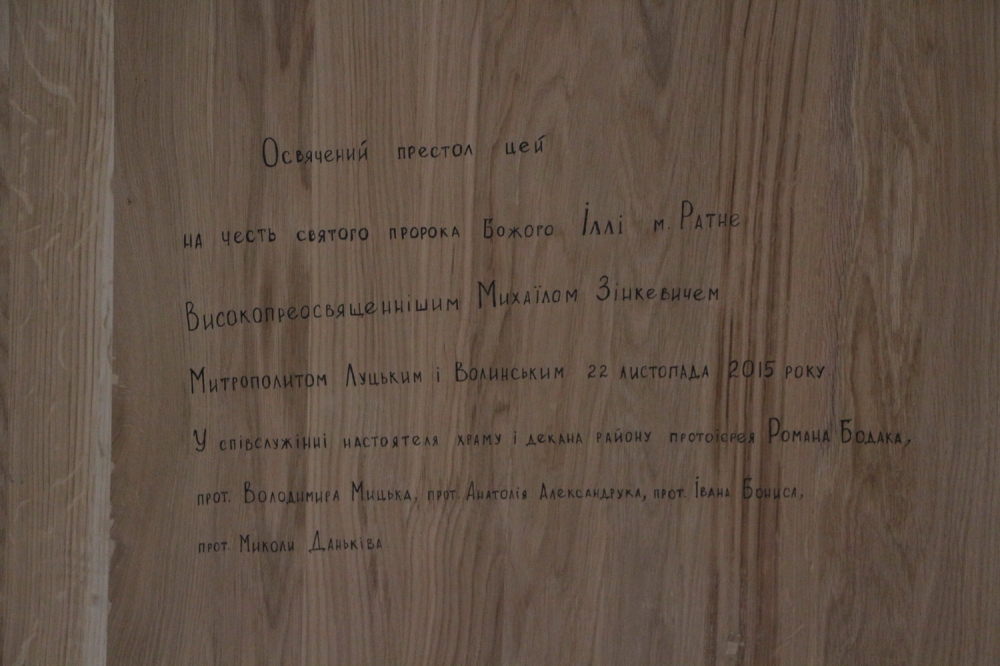 Освячений престол цей
на честь святого пророка Божого Іллі м. Ратне
Високопреосвященнішим Михаїлом Зінкевичем
Митрополитом Луцьким і Волинським 22 листопада 2015 року.
У співслужінні настоятеля храму і декана району протоієрея Романа Бодака,
прот. Володимира Мицька, прот. Анатолія Александрука, прот. Івана
прот. Миколи Даньківа